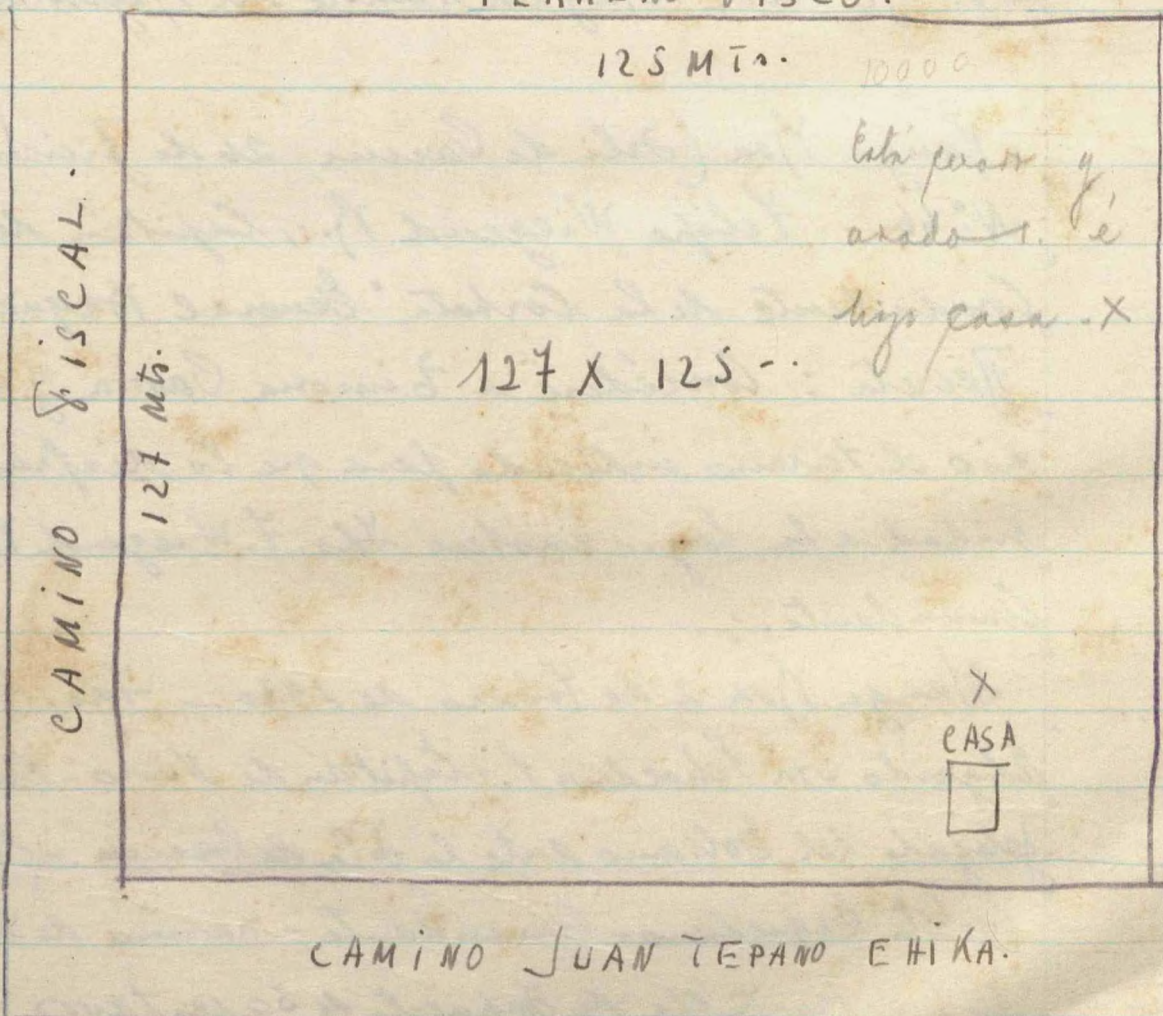 TERRENO FISCO.
125 MTs.
10000
Está y
arado é
hizo casa. X
CAMINO FISCAL.
127 Mts.
127 X 125 -.
X
CASA
CAMINO JUAN TEPANO EHIKA.